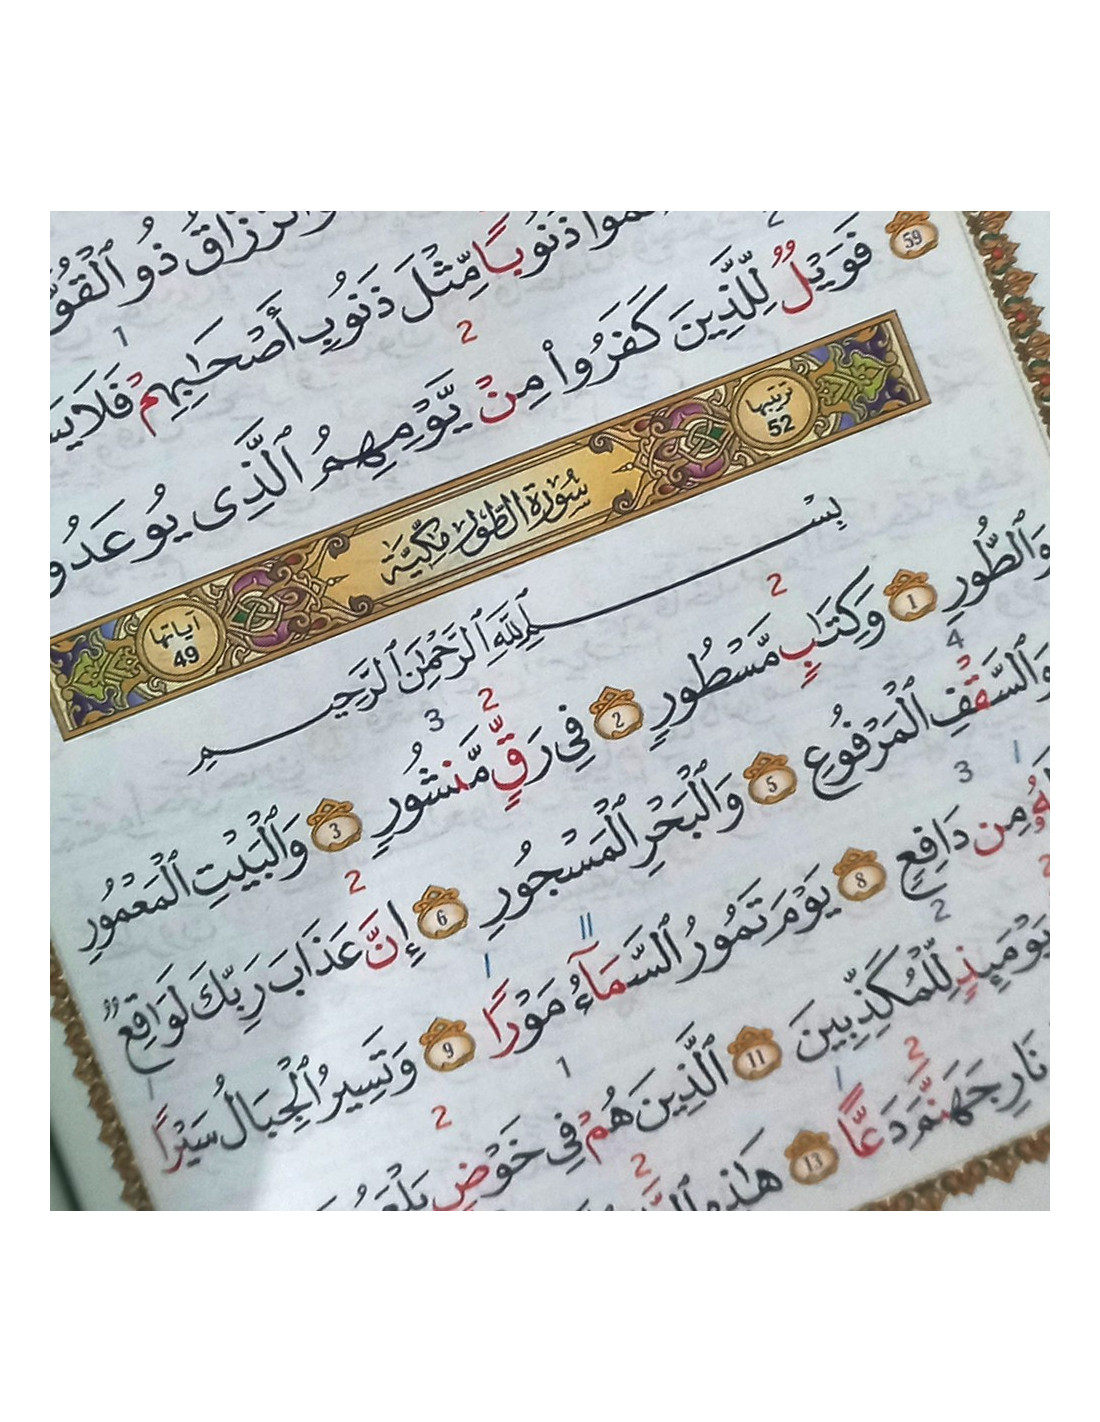 الرزاق ذو القو
ذَنُوبًا مِّثْلَ ذَنُوبِ أَصْحَٰبِهِمْ فَلَا
1
59 فَوَيْلٌ لِّلَّذِينَ كَفَرُوا۟ مِنْ يَّوْمِهِمُ ٱلَّذِى يُوعَدُو
2 2
ترتيبها 52 سُورَةُ الطُّورِ مَكِّيَّة آياتها 49
بِسْمِ ٱللَّهِ ٱلرَّحْمَٰنِ ٱلرَّحِيمِ
2 2 3
وَٱلطُّورِ 1 وَكِتَٰبٍ مَّسْطُورٍ 2 فِى رَقٍّ مَّنشُورٍ 3 وَٱلْبَيْتِ ٱلْمَعْمُورِ
4 2
وَٱلسَّقْفِ ٱلْمَرْفُوعِ 5 وَٱلْبَحْرِ ٱلْمَسْجُورِ 6 إِنَّ عَذَابَ رَبِّكَ لَوَٰقِعٌ
3
مِن دَافِعٍ 8 يَوْمَ تَمُورُ ٱلسَّمَآءُ مَوْرًا 9 وَتَسِيرُ ٱلْجِبَالُ سَيْرًا
2 1 2
يَوْمَئِذٍ لِّلْمُكَذِّبِينَ 11 ٱلَّذِينَ هُمْ فِى خَوْضٍ
2 2
نَارِ جَهَنَّمَ دَعًّا 13 هَٰذِهِ